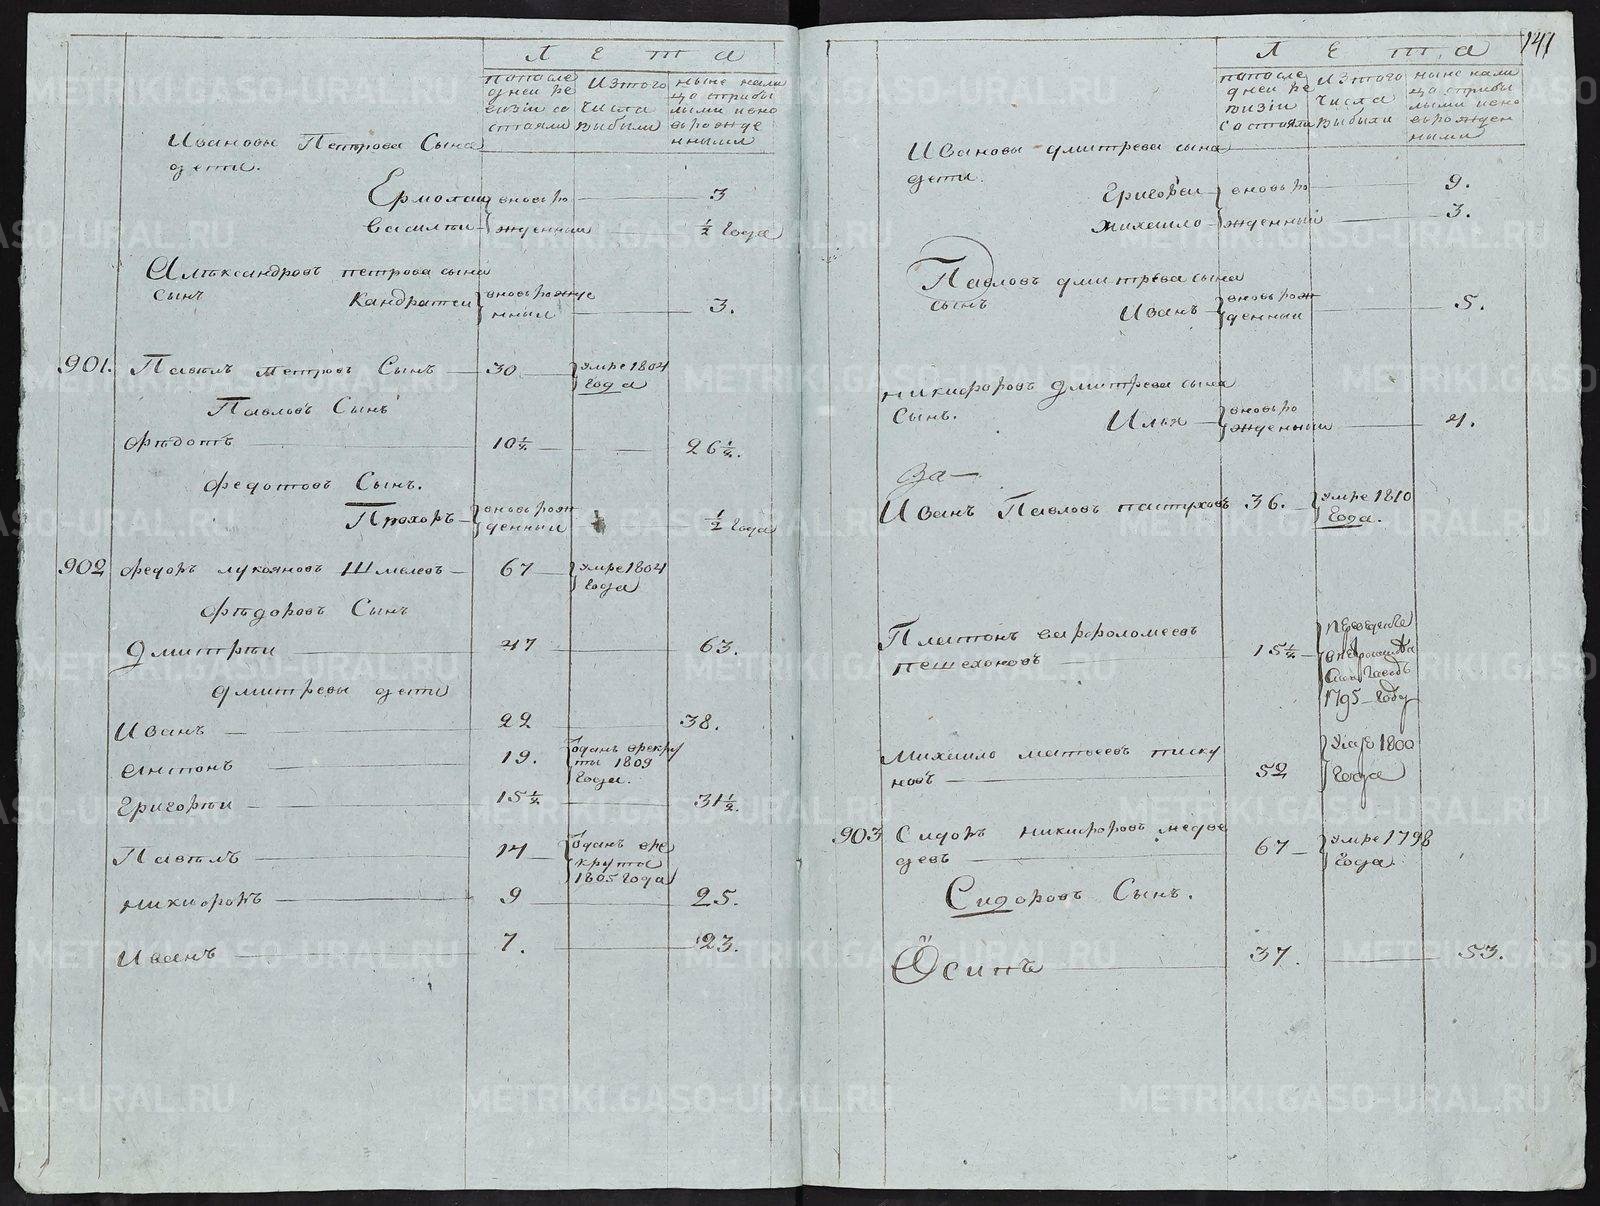 Л е т а
попосле
дней ре
визіи со
стояли
Изтого
числа
выбыли
ныне нали
цо сприбы
лыми ино
ворожде
нными
Ивановы Петрова Сына
дети.
Ермолаи вновь ро 3
Василеи жденныи ½ года
Александровъ петрова сына
сынъ Кандратеи вновь рожде
нныи 3.
901. Павелъ Петровъ Сынъ 30 умре 1804
года
Павловъ Сынъ
Федотъ 10½ 26½.
Федотовъ Сынъ.
Прохоръ вновь рож
денныи ½ года
902 Федоръ лукояновъ Шмелевъ 67 умре 1804
года
Федоровъ Сынъ
Дмитреи 47 63.
дмитревы дети
Иванъ 22 38.
Антонъ 19. одань врекру
ты 1809
года.
Григореи 15½ 31½.
Павелъ 14 одань вре
круты
1805 года
никифоръ 9 25.
Иванъ 7. 23.
141
Л е т а
попосле
дней ре
визіи
состояли
изтого
числа
выбыли
ныне нали
цо сприбы
лыми ино
ворожден
ными
Ивановы дмитрева сына
дети
Григореи вновь ро 9.
михаило жденныи 3.
Павловъ дмитрева сына
сынъ Иванъ вновь рож
денныи 5.
никифоровъ дмитрева сына
Сынъ. Илья вновь ро
жденныи 4.
За
Иванъ Павловъ пастуховъ 36. умре 1810
года.
Платонъ варфоломеевъ
пешехоновъ 15½ переведенъ
1795 году
Михаило матвеевъ писку
новъ 52 1800
года
903 Сидоръ никифоровъ медве
девъ 67 умре 1798
года
Сидоровъ Сынъ.
Осипъ 37. 53.
METRIKI.GASO-URAL.RU